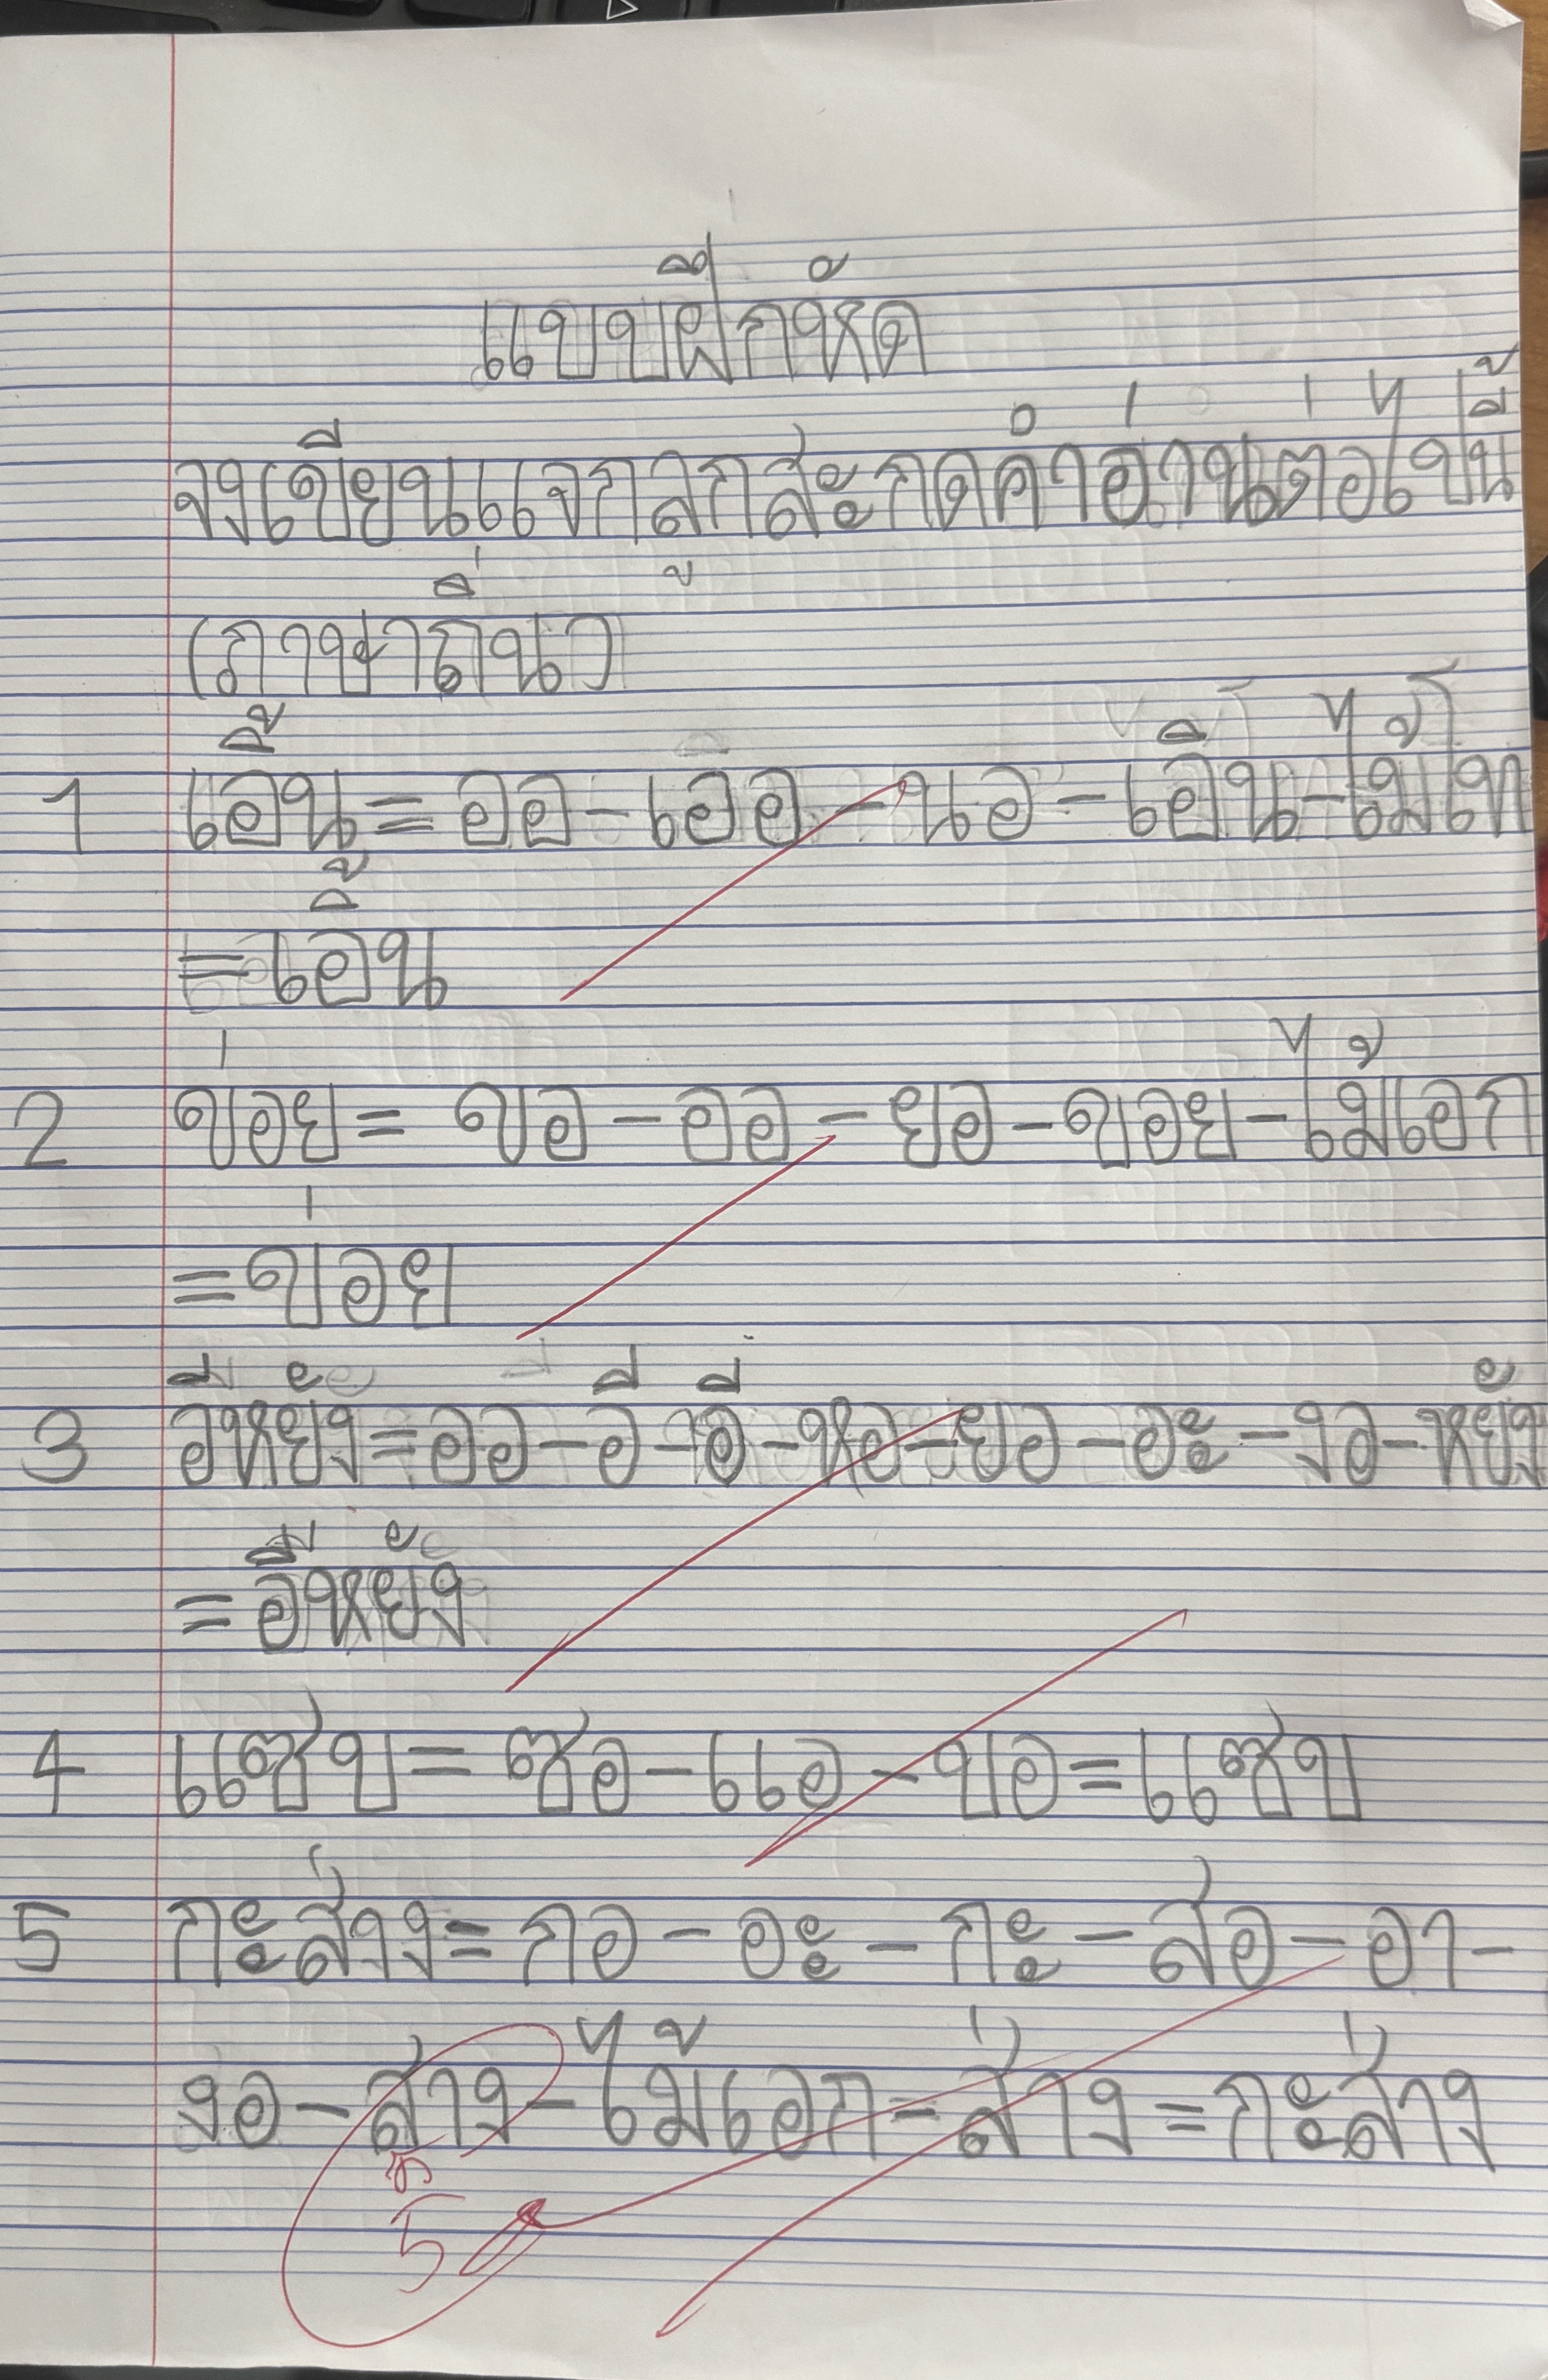 แบบฝึกหัด
จงเขียนแจกลูกสะกดคำอ่านต่อไปนี้
(ภาษาถิ่น)
1 เอิ้น = ออ - เออ - นอ - เอิน - ไม้โท
= เอิ้น
2 ข่อย = ขอ - ออ - ยอ - ขอย - ไม้เอก
= ข่อย
3 อีหยัง = ออ - อี - อี - หอ - ยอ - อะ - งอ - หยัง
= อีหยัง
4 แซ่บ = ซอ - แอ - บอ = แซ่บ
5 กะส่าง = กอ - อะ - กะ - สอ - อา -
งอ - สาง - ไม้เอก - ส่าง = กะส่าง
5